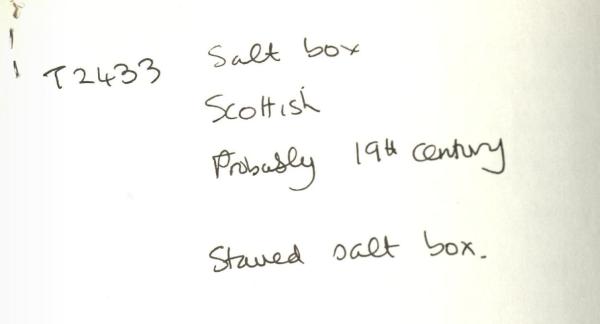 T2433 Salt box
Scottish
Probably 19th century
Staved salt box.